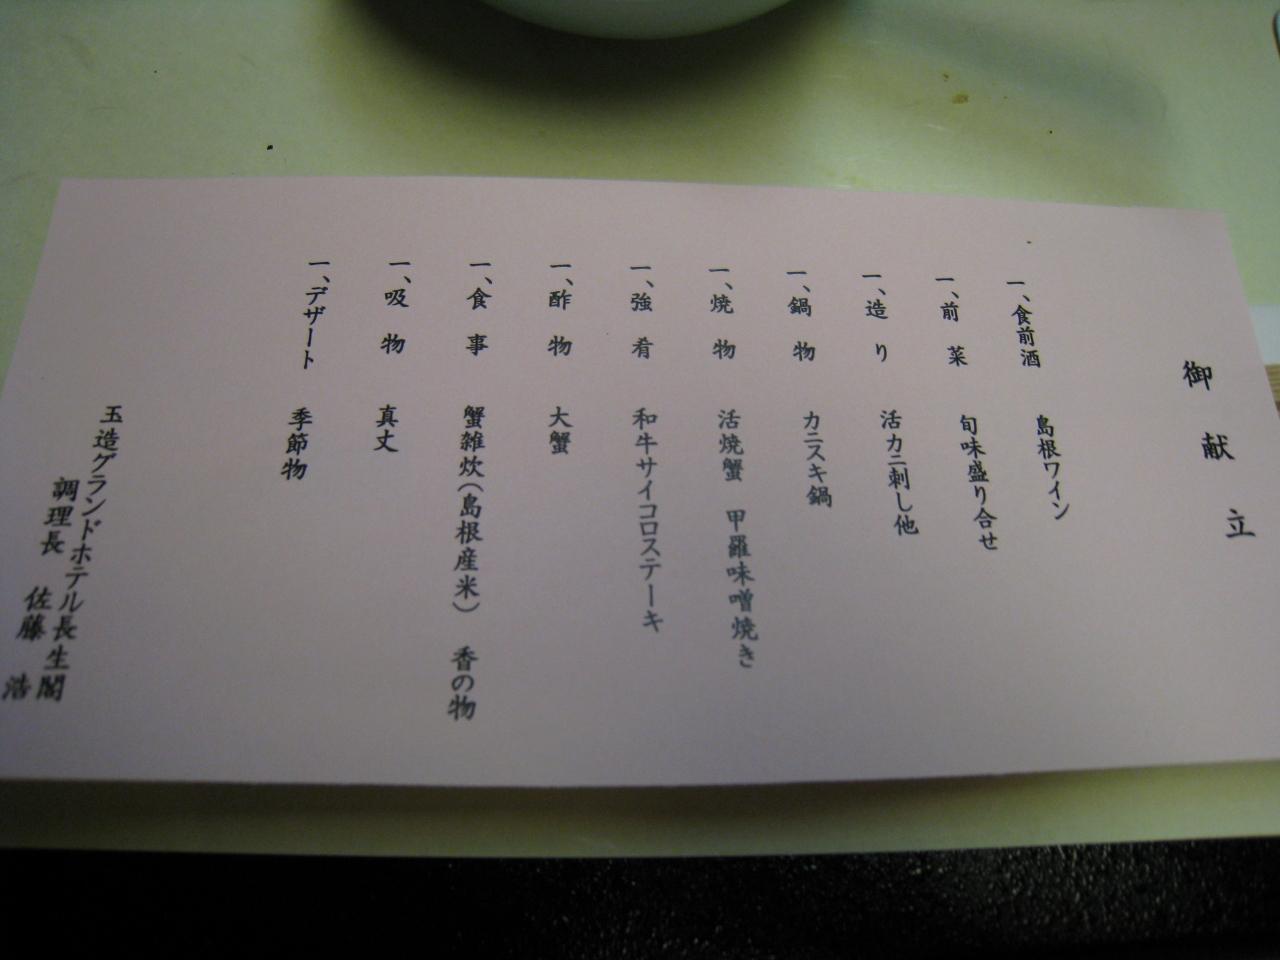 御献立
一、食前酒　島根ワイン
一、前菜　旬味盛り合せ
一、造り　活カニ刺し他
一、鍋物　カニスキ鍋
一、焼物　活焼蟹　甲羅味噌焼き
一、強肴　和牛サイコロステーキ
一、酢物　大蟹
一、食事　蟹雑炊（島根産米）　香の物
一、吸物　真丈
一、デザート　季節物
玉造グランドホテル長生閣
調理長　佐藤　浩